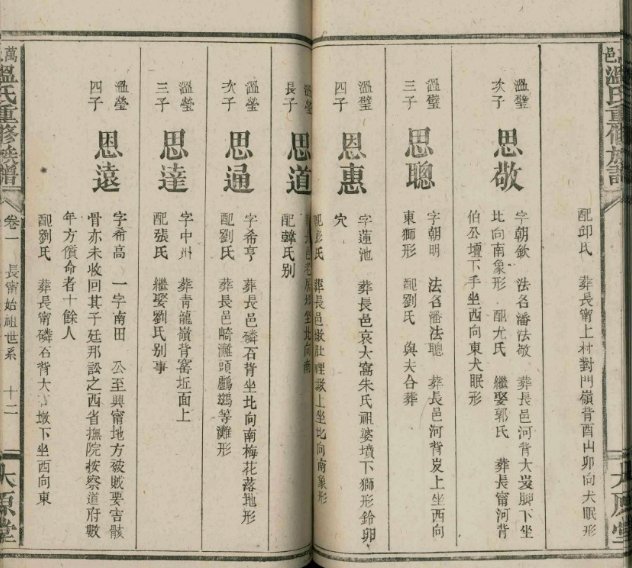 邑溫氏重修族譜
太原堂
配邱氏 葬長甯上村對門嶺背酉山卯向犬眠形
溫璧次子
思敬
字朝欽 法名潘法敬 葬長邑河背大岌脚下坐
比向南象形 配尤氏 繼娶郭氏 葬長甯河背
伯公壇下手坐西向東犬眠形
溫璧三子
思聰
字朝明 法名潘法聰 葬長邑河背岌上坐西向
東獅形 配劉氏 與夫合葬
溫璧四子
思惠
字蓮池 葬長邑哀大窩朱氏祖婆墳下獅形鈴卯
穴
配彭氏 葬長邑 上坐北向南象形
溫瑩長子
思道
坐北向南
配韓氏別
溫瑩次子
思通
字希亨 葬長邑磷石背坐比向南梅花落地形
配劉氏 葬長邑崎灘頭鸕鷀等灘形
溫瑩三子
思達
字中州 葬青龍嶺背窰坵面上
配張氏 繼娶劉氏別事
溫瑩四子
思遠
字希高 一字南田 公至興甯地方被賊要害骸
骨亦未收回其子廷那訟之西省撫院按察道府數
年方償命者十餘人
配劉氏 葬長甯磷石背大墩下坐西向東
萬邑溫氏重修族譜
卷一 長甯始祖世系 十二
太原堂